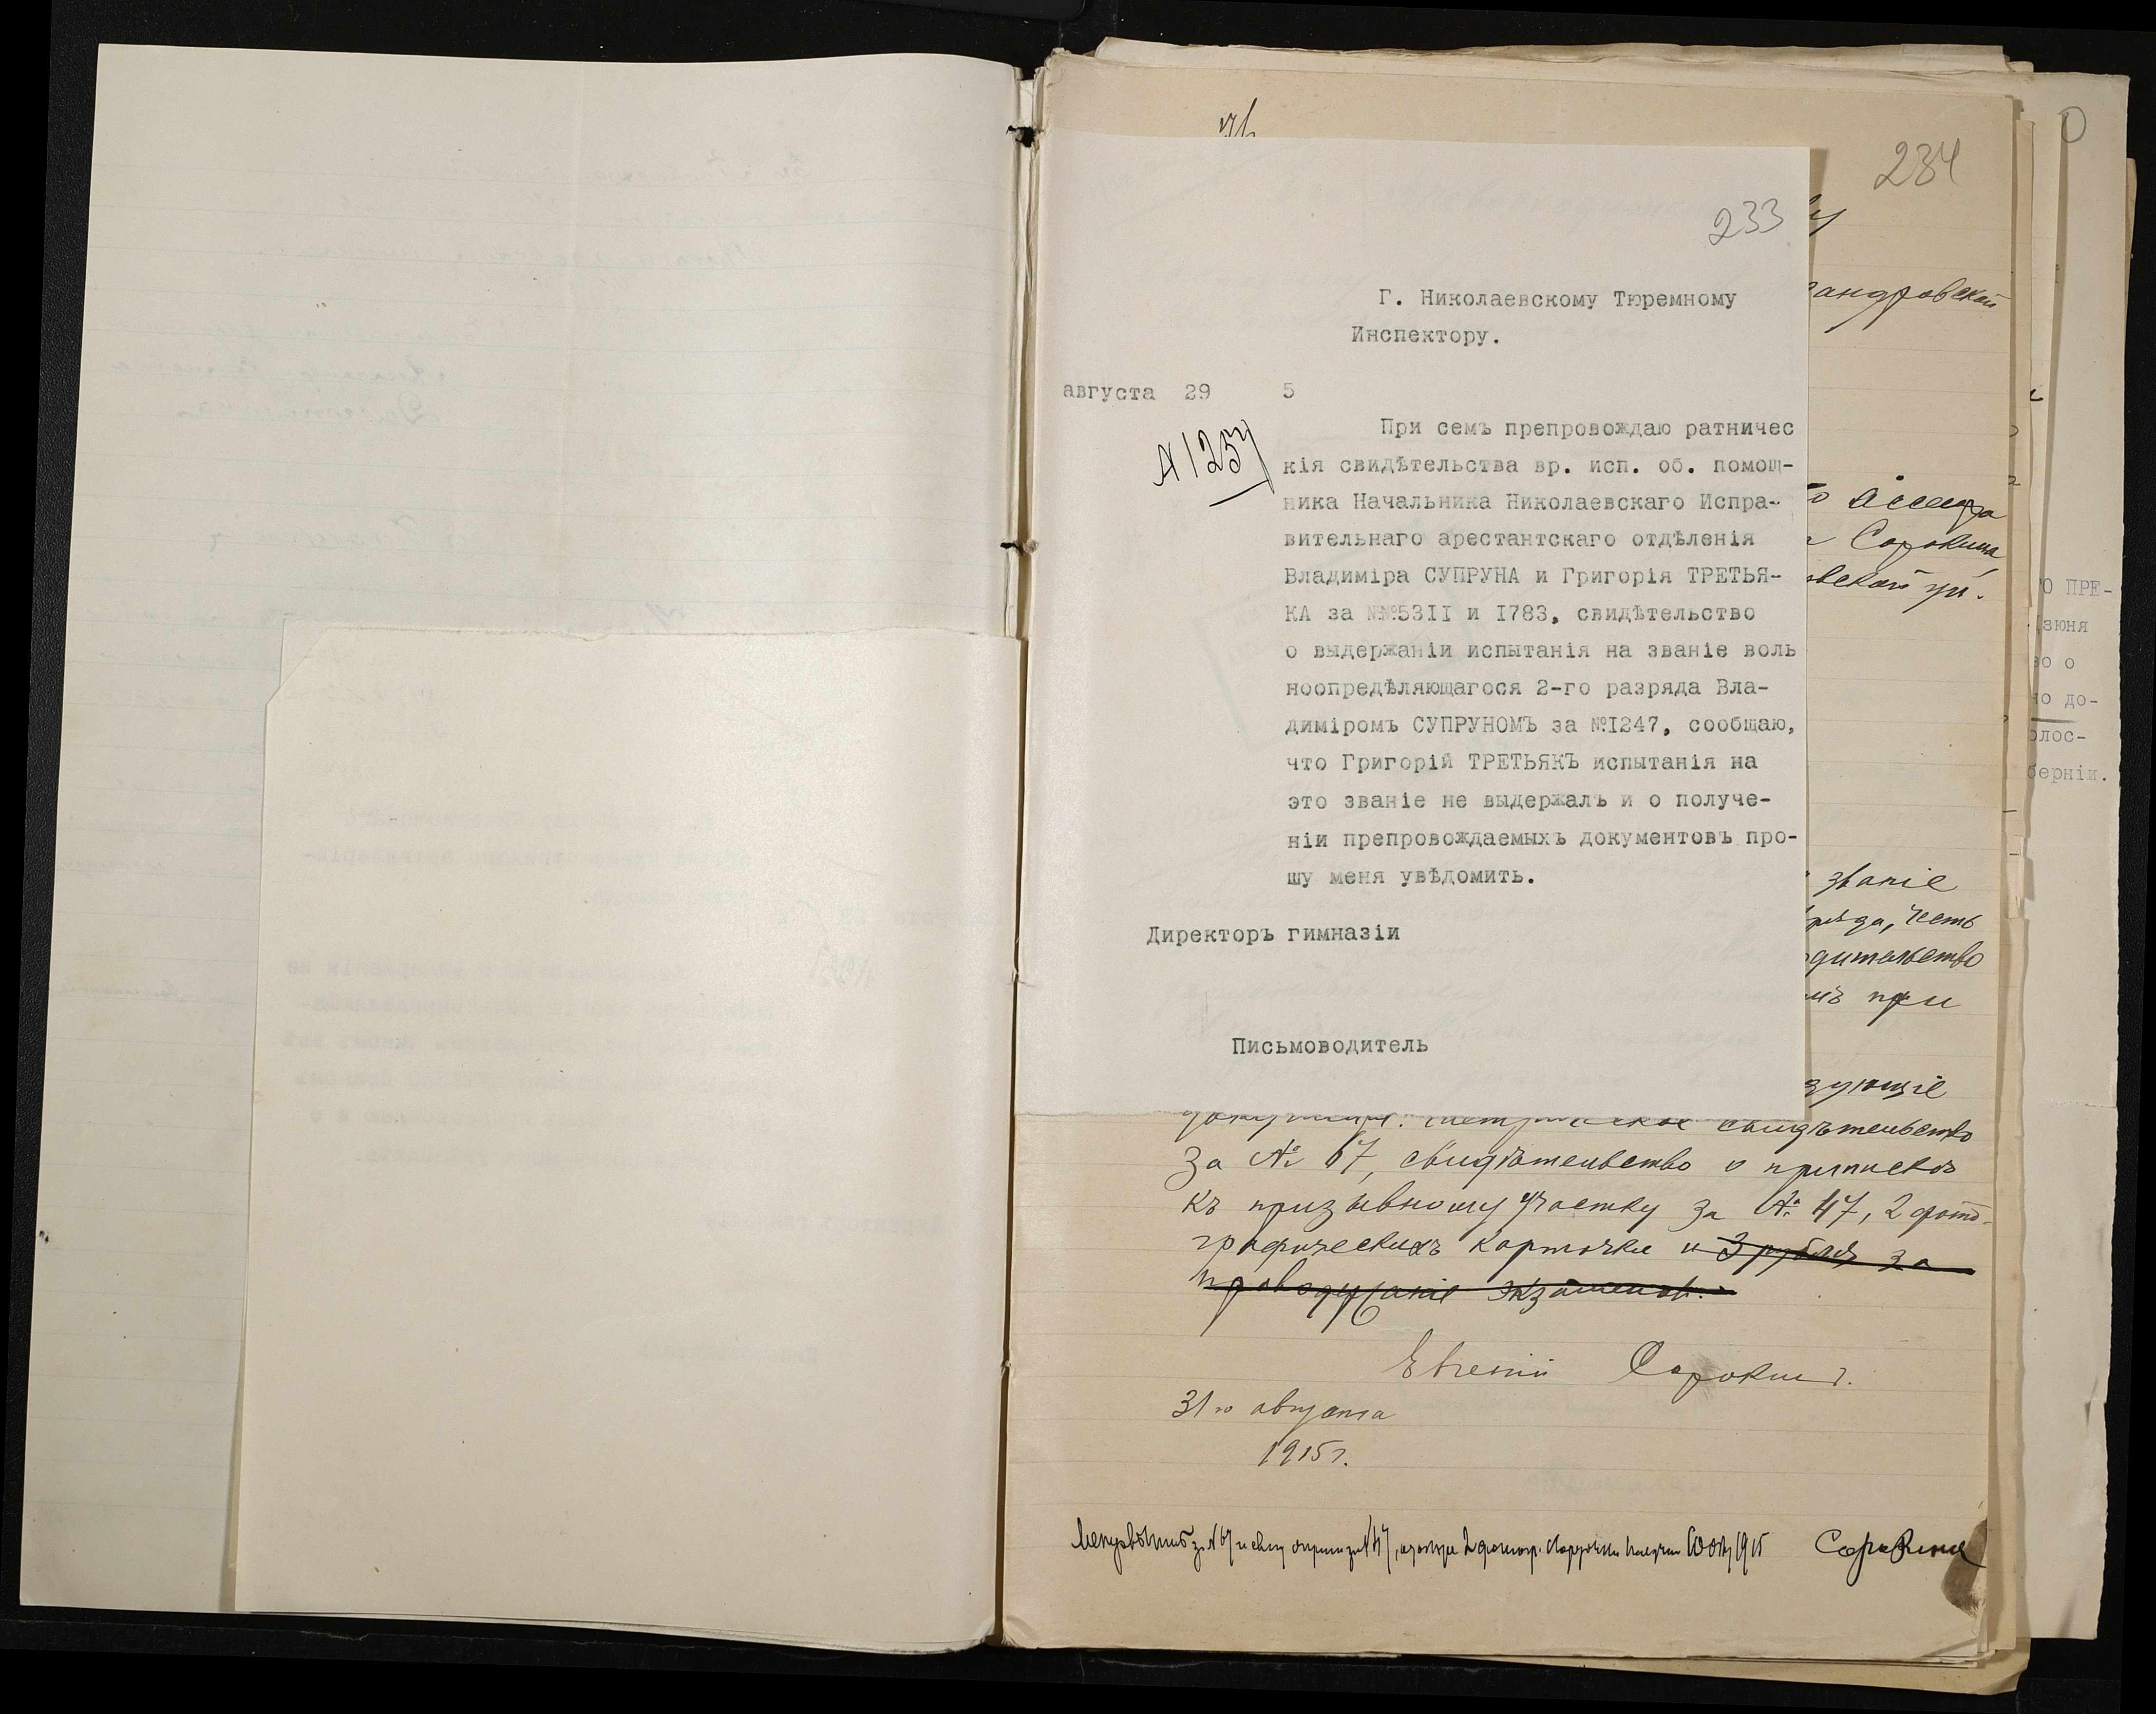 234
233
Г. Николаевскому Тюремному
Инспектору.
августа 29 5
№ 1257
При семъ препровождаю ратничес
кія свидѣтельства вр. исп. об. помощ-
ника Начальника Николаевскаго Испра-
вительнаго арестантскаго отдѣленія
Владиміра СУПРУНА и Григорія ТРЕТЬЯ-
КА за №№5311 и 1783, свидѣтельство
о выдержаніи испытанія на званіе воль
ноопредѣляющагося 2-го разряда Вла-
диміромъ СУПРУНОМЪ за №1247, сообщаю,
что Григорій ТРЕТЬЯКЪ испытанія на
это званіе не выдержалъ и о получе-
ніи препровождаемыхъ документовъ про-
шу меня увѣдомить.
Директоръ гимназіи
Письмоводитель
андровской
Сорокина
званіе
при
свидѣтельство
за № 67, свидѣтельство о припискѣ
къ призывному участку за № 47, 2 фото-
графическихъ карточки и 3 рубля за
экзаменов.
Евгеній Сорокинъ.
31го августа
1915 г.
О ПРЕ-
зюня
во о
но до-
олос-
берніи.